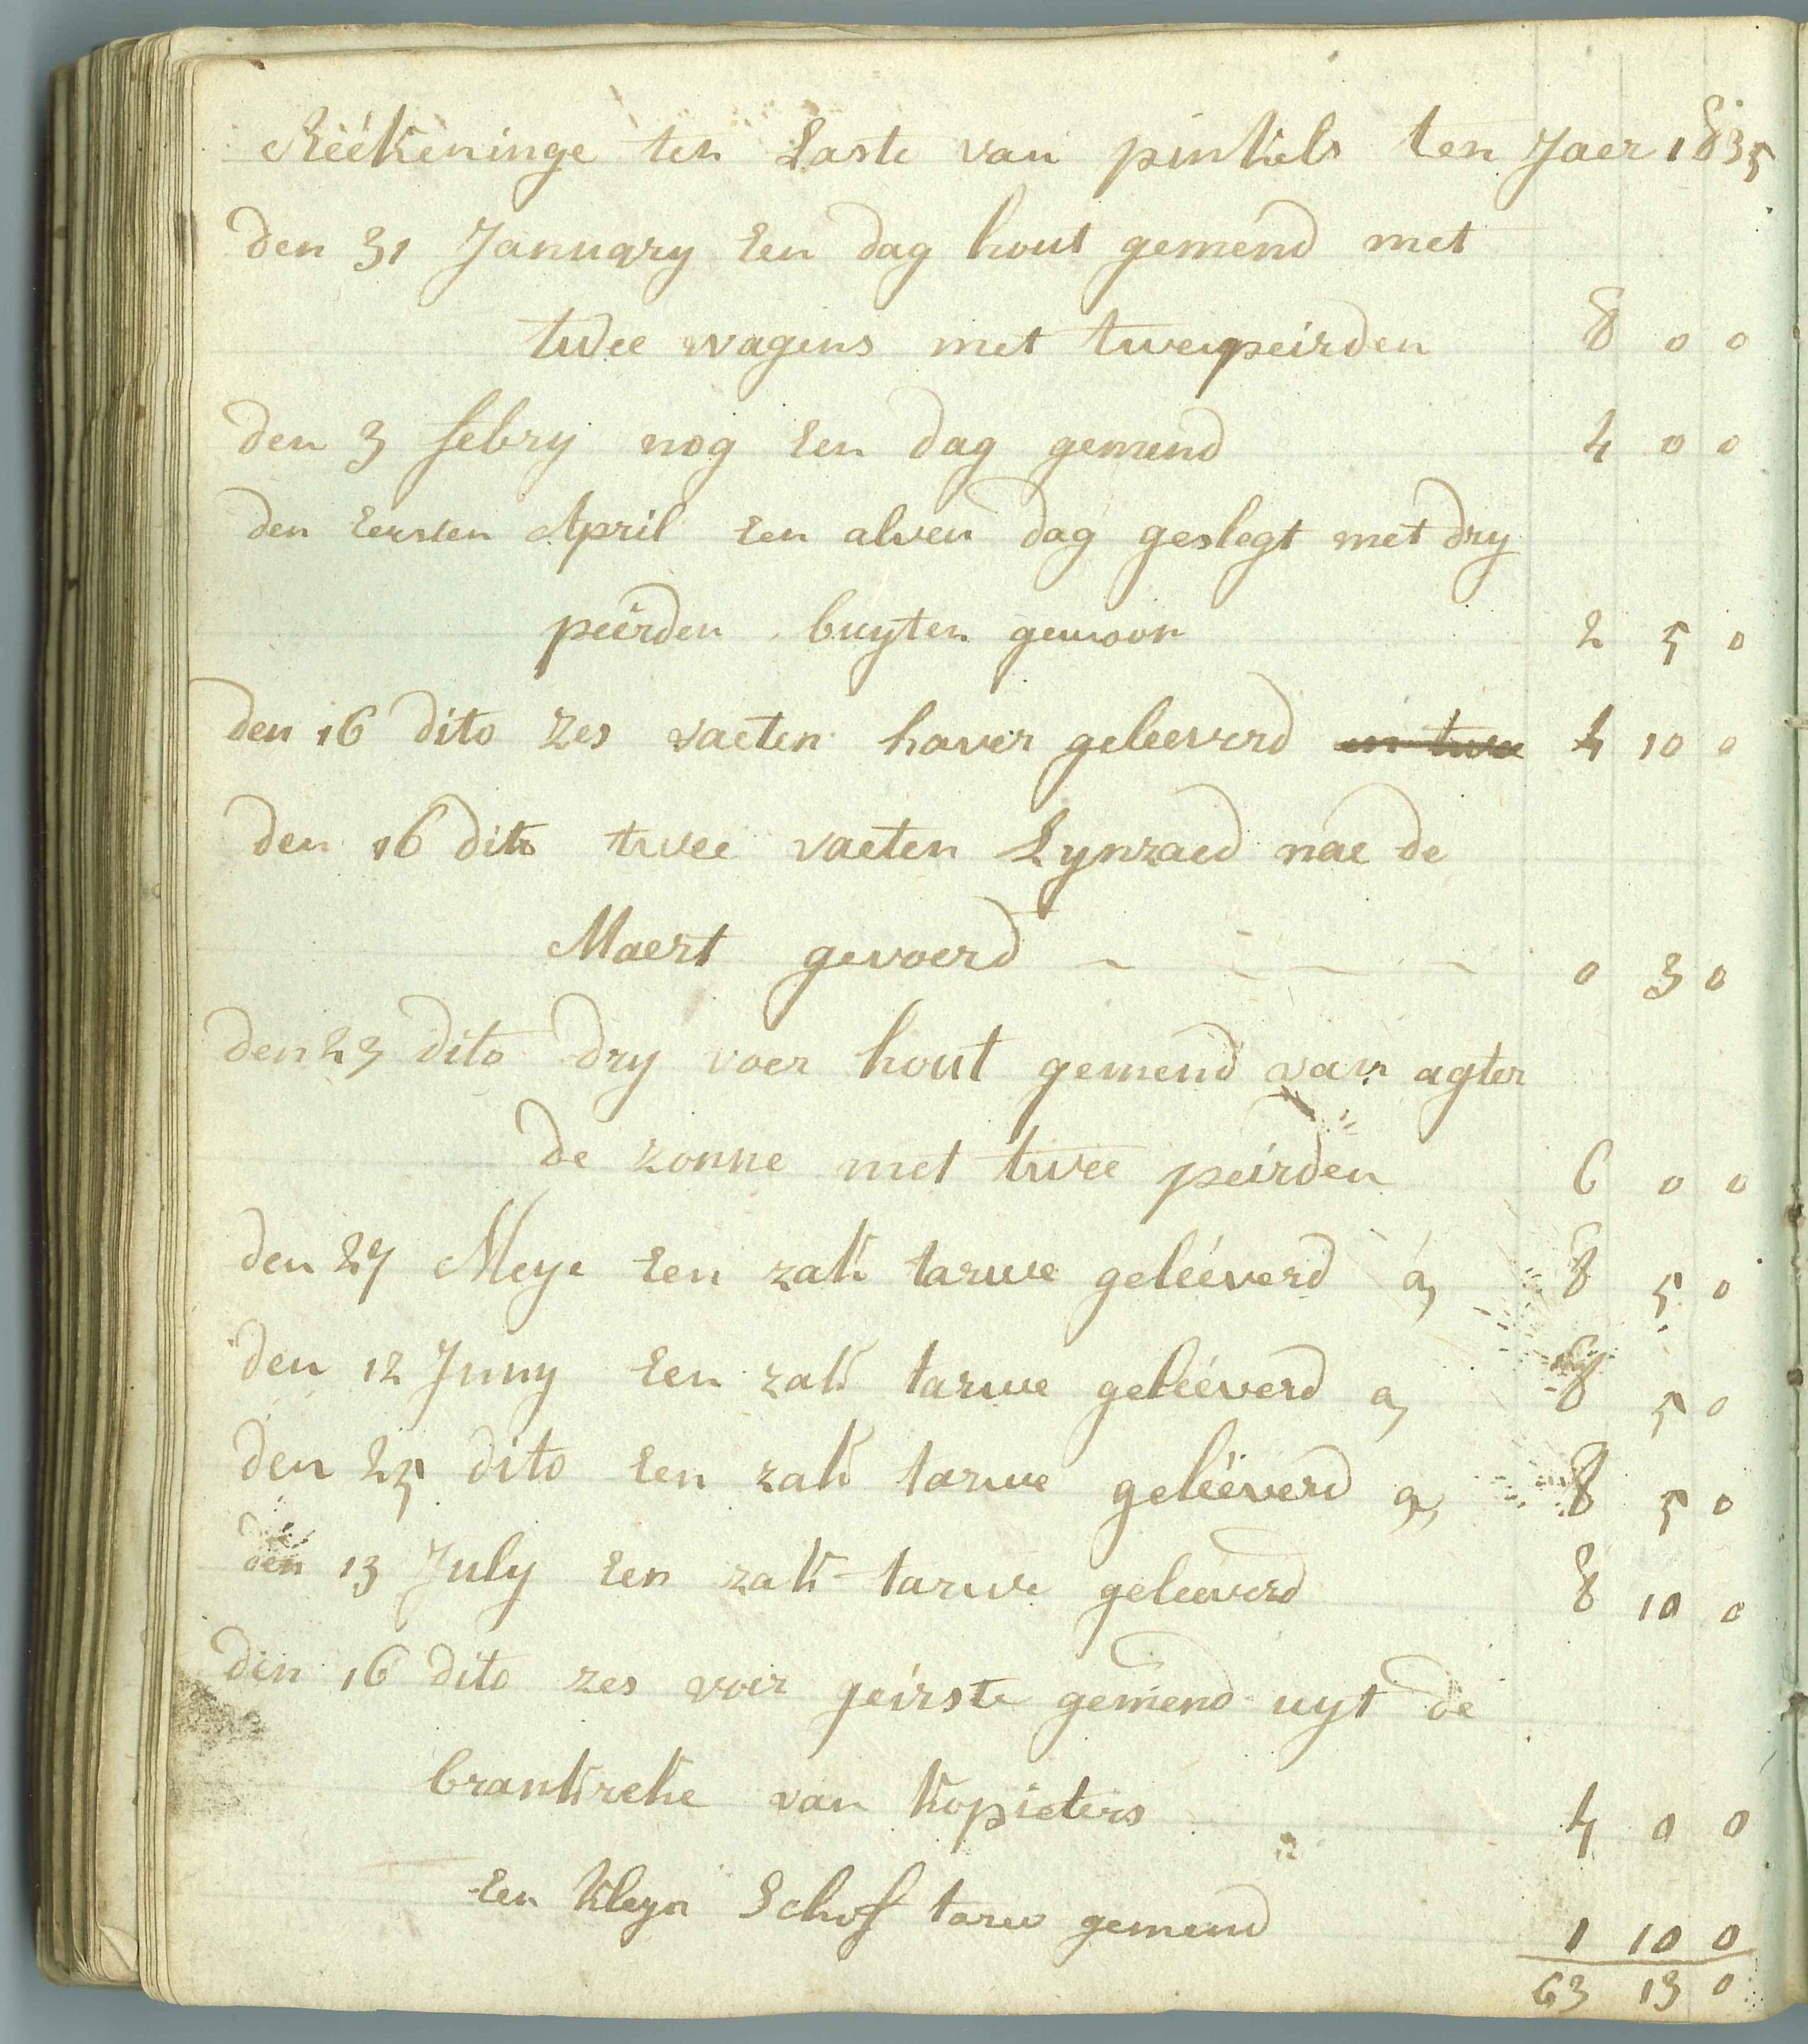 Réékeninge ten Laste van pinkels ten Jaer 1835
den 31 January Een dag hout gemend met
twee wagens met twee peirden 8 0 0
den 3 febry nog Een dag gemend 4 0 0
den Eersten April Een alven dag geslegt met dry
peirden buyten gewoon 2 5 0
den 16 dito zes vaeten haver geleeverd en twee 4 10 0
den 16 dito twee vaeten Lynzaed nae de
Maert gevoerd - - - - 0 3 0
den 23 dito dry voer hout gemend van agter
de zonne met twee peirden 6 0 0
den 27 Meye Een zak tarwe geléeverd á 8 5 0
den 12 Juny Een zak tarwe geléeverd a 8 5 0
den 25 dito Een zak tarwe geléeverd a 8 5 0
den 13 July Een zak tarwe geleeverd 8 10 0
den 16 dito zes voer geirste gemend uyt de
van kopieters 4 0 0
Een kleyn Schof tarw gemend 1 10 0
63 13 0